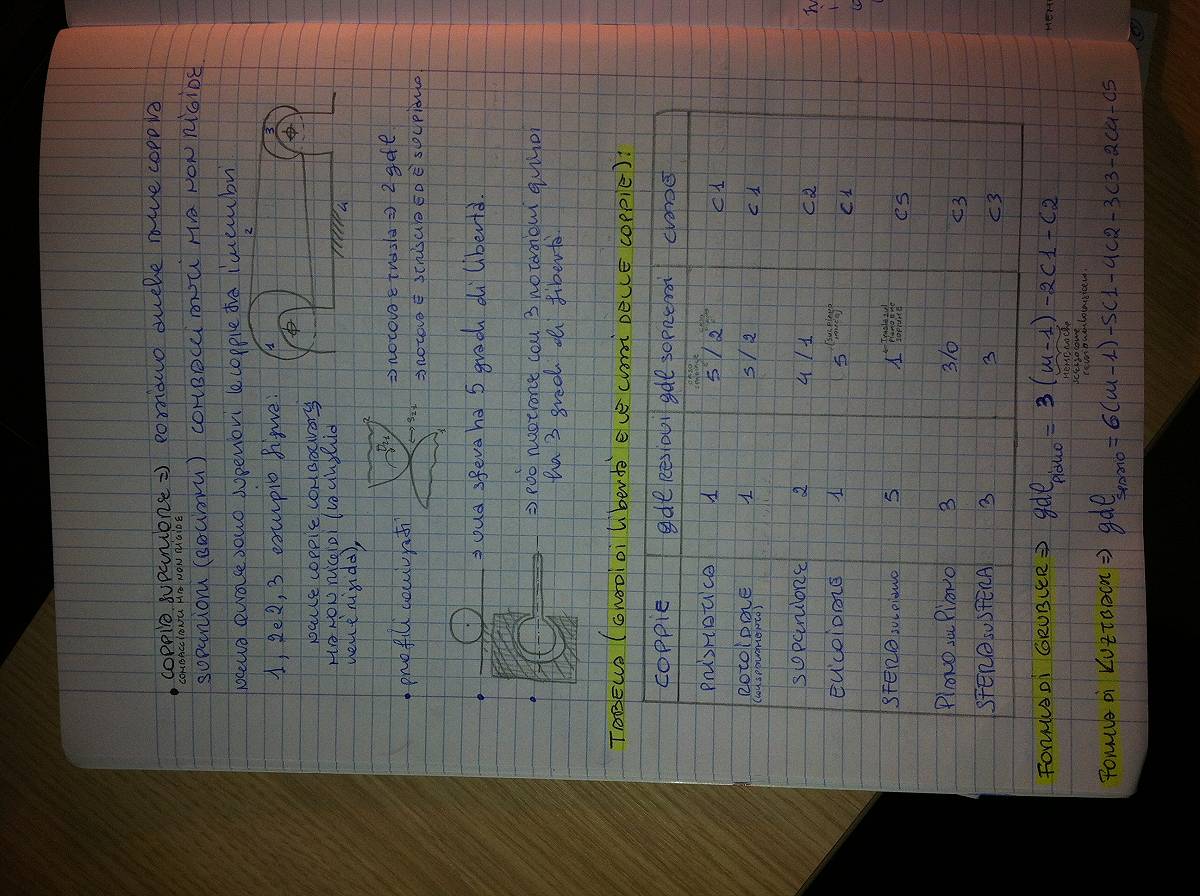 • COPPIA SUPERIORE => possiamo avere anche delle coppie
COMBACIANTI MA NON RIGIDE
SUPERIORI (
) COMBACIANTI MA NON RIGIDE.
sono superiori le coppie tra i membri
1, 2 e 2, 3 esempio figura:
1
2
3
4
delle coppie combacianti
ma non rigidi (
• profili coniugati
2
1
=> ROTOLA E TRASLA => 2 gdl.
=> ROTOLA E STRISCIA ED È SUL PIANO.
•
=> una sfera ha 5 gradi di libertà.
•
=> può muoversi con 3 rotazioni quindi
ha 3 gradi di libertà.
TABELLA (GRADI DI libertà E LE classi DELLE COPPIE):
COPPIE gdl RESIDUI gdl soppressi classe
PRISMATICA 1 5/2 C1
ROTOIDALE 1 5/2 C1
SUPERIORE 2 4/1 C2
ELICOIDALE 1 5 C1
SFERA sul piano 5 1 C5
PIANO sul PIANO 3 3/0 C3
SFERA su SFERA 3 3 C3
FORMULA DI GRUBLER => gdl piano = 3 (m-1) - 2C1 - C2
FORMULA DI KUZTBACH => gdl spazio = 6(m-1) - 5C1 - 4C2 - 3C3 - 2C4 - C5